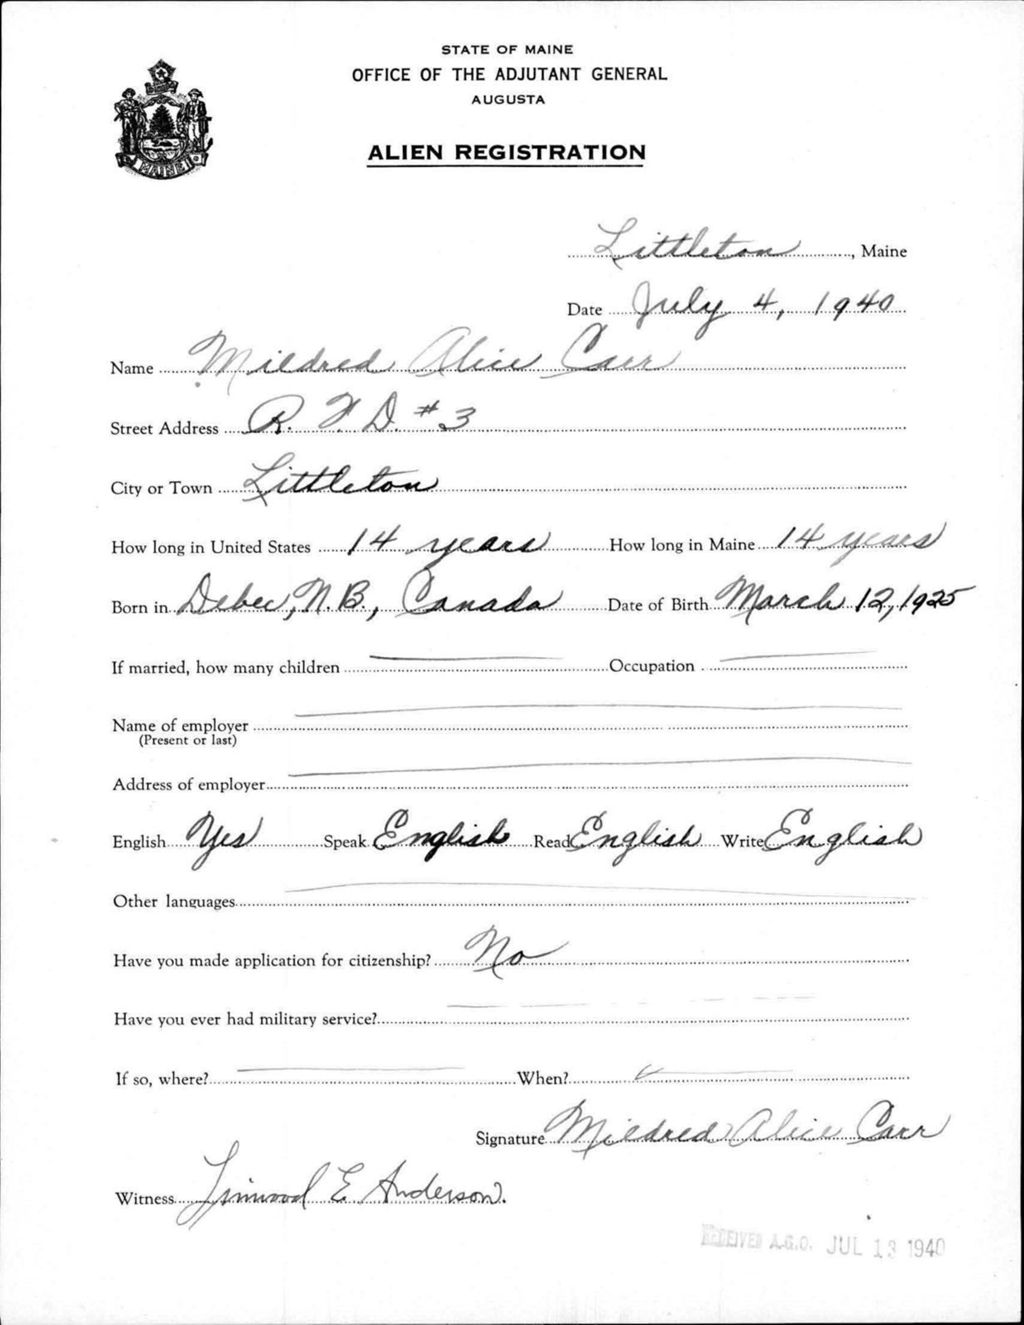 STATE OF MAINE
OFFICE OF THE ADJUTANT GENERAL
AUGUSTA
ALIEN REGISTRATION
MAINE
Littleton, Maine
Date July 4, 1940
Name Mildred Alice Carr
Street Address R. F. D. #3
City or Town Littleton
How long in United States 14 years How long in Maine 14 years
Born in Debec, N.B., Canada Date of Birth March 12, 1925
If married, how many children Occupation
Name of employer
(Present or last)
Address of employer
English Yes Speak English Read English Write English
Other languages
Have you made application for citizenship? No
Have you ever had military service?
If so, where? When?
Signature Mildred Alice Carr
Witness Linwood E Anderson.
RECEIVED A.G.O. JUL 13 1940